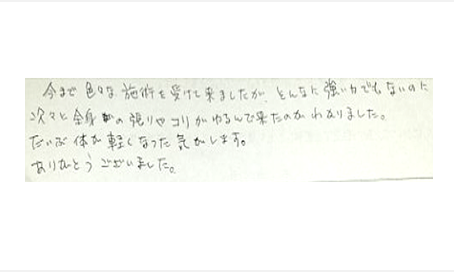 今まで色々な施術を受けて来ましたが、そんなに強い力でもないのに
次々と全身の張りやコリがゆるんで来たのがわかりました。
だいぶ体が軽くなった気がします。
ありがとうございました。